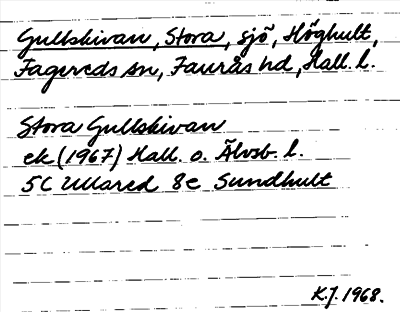 Gullskivan, Stora, sjö, Höghult,
Fagereds sn, Faurås hd, Hall. l.
Stora Gullskivan
ek (1967) Hall. o. Älvsb. l.
5C Ullared 8e Sundhult
K.J. 1968.